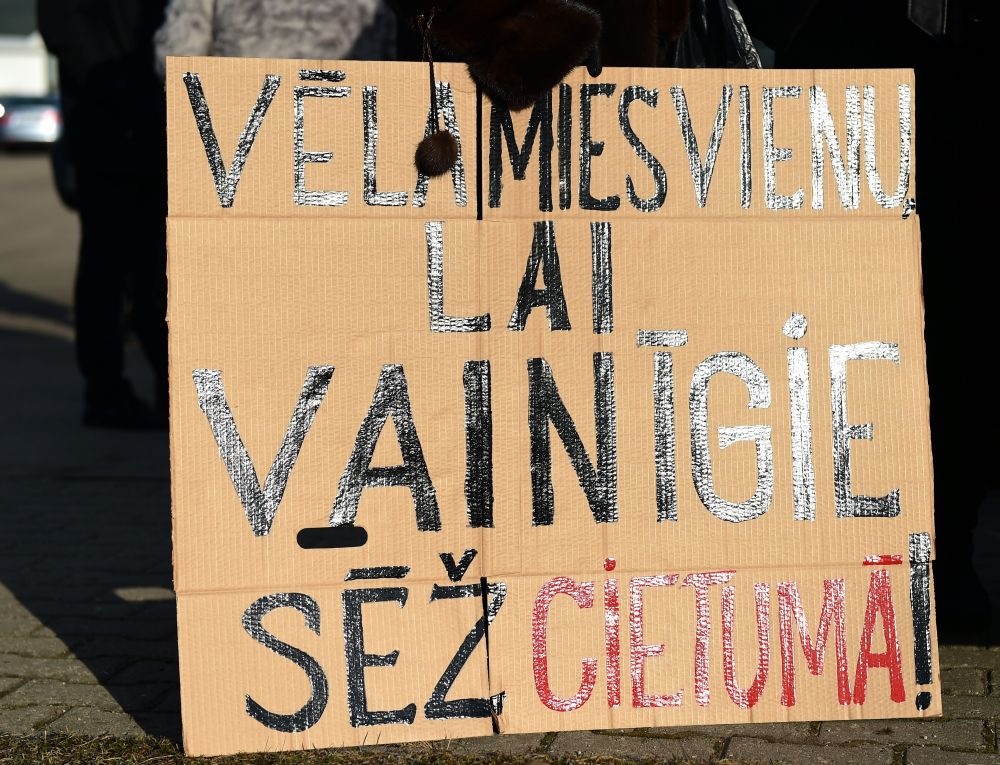 VĒLAMIES VIENU,
LAI
VAINĪGIE
SĒŽ CIETUMĀ!